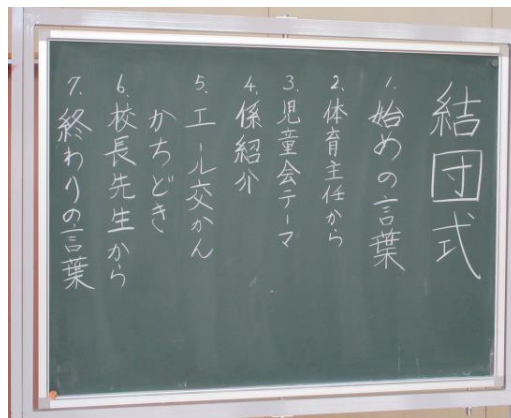 結団式
1. 始めの言葉
2. 体育主任から
3. 児童会テーマ
4. 係紹介
5. エール交かん
かちどき
6. 校長先生から
7. 終わりの言葉